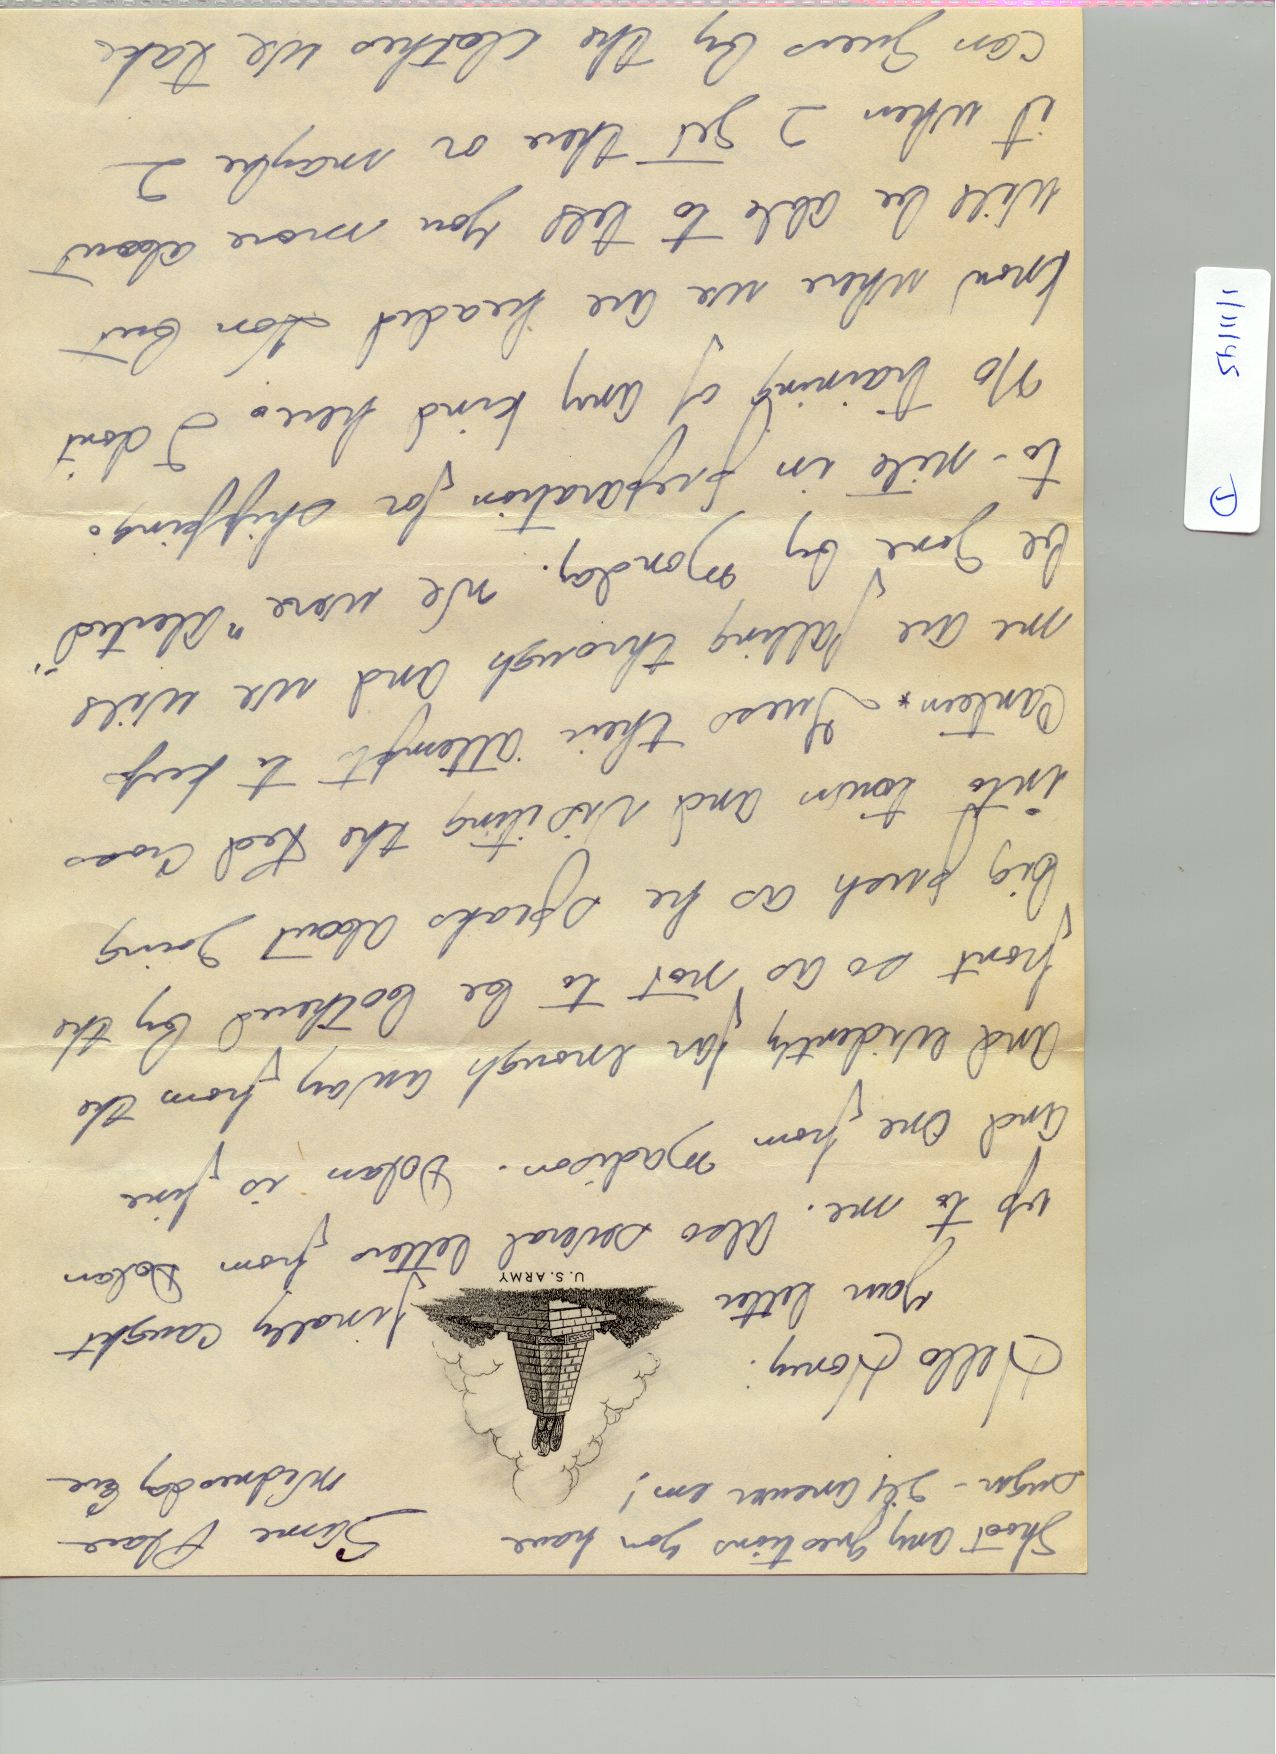 Shoot any questions you have
sugar - I'll answer em!
Same Place
Wednesday Eve
U.S. ARMY
Hello Honey:
Your letter finally caught
up to me. Also several letters from Dolan
and one from Madison. Dolan is fine
and evidently far enough away from the
front so as not to be bothered by the
big push as he speaks about going
into town and visiting the Red Cross
Canteen. Guess their attempt to keep
me are falling through and we will
be gone by Monday. We were "alerted"
to-nite in preparation for shipping.
No training of any kind here. I don't
know where we are headed Hon but
will be able to tell you more about
it when I get there or maybe I
can guess by the clothes we take
1/11/45